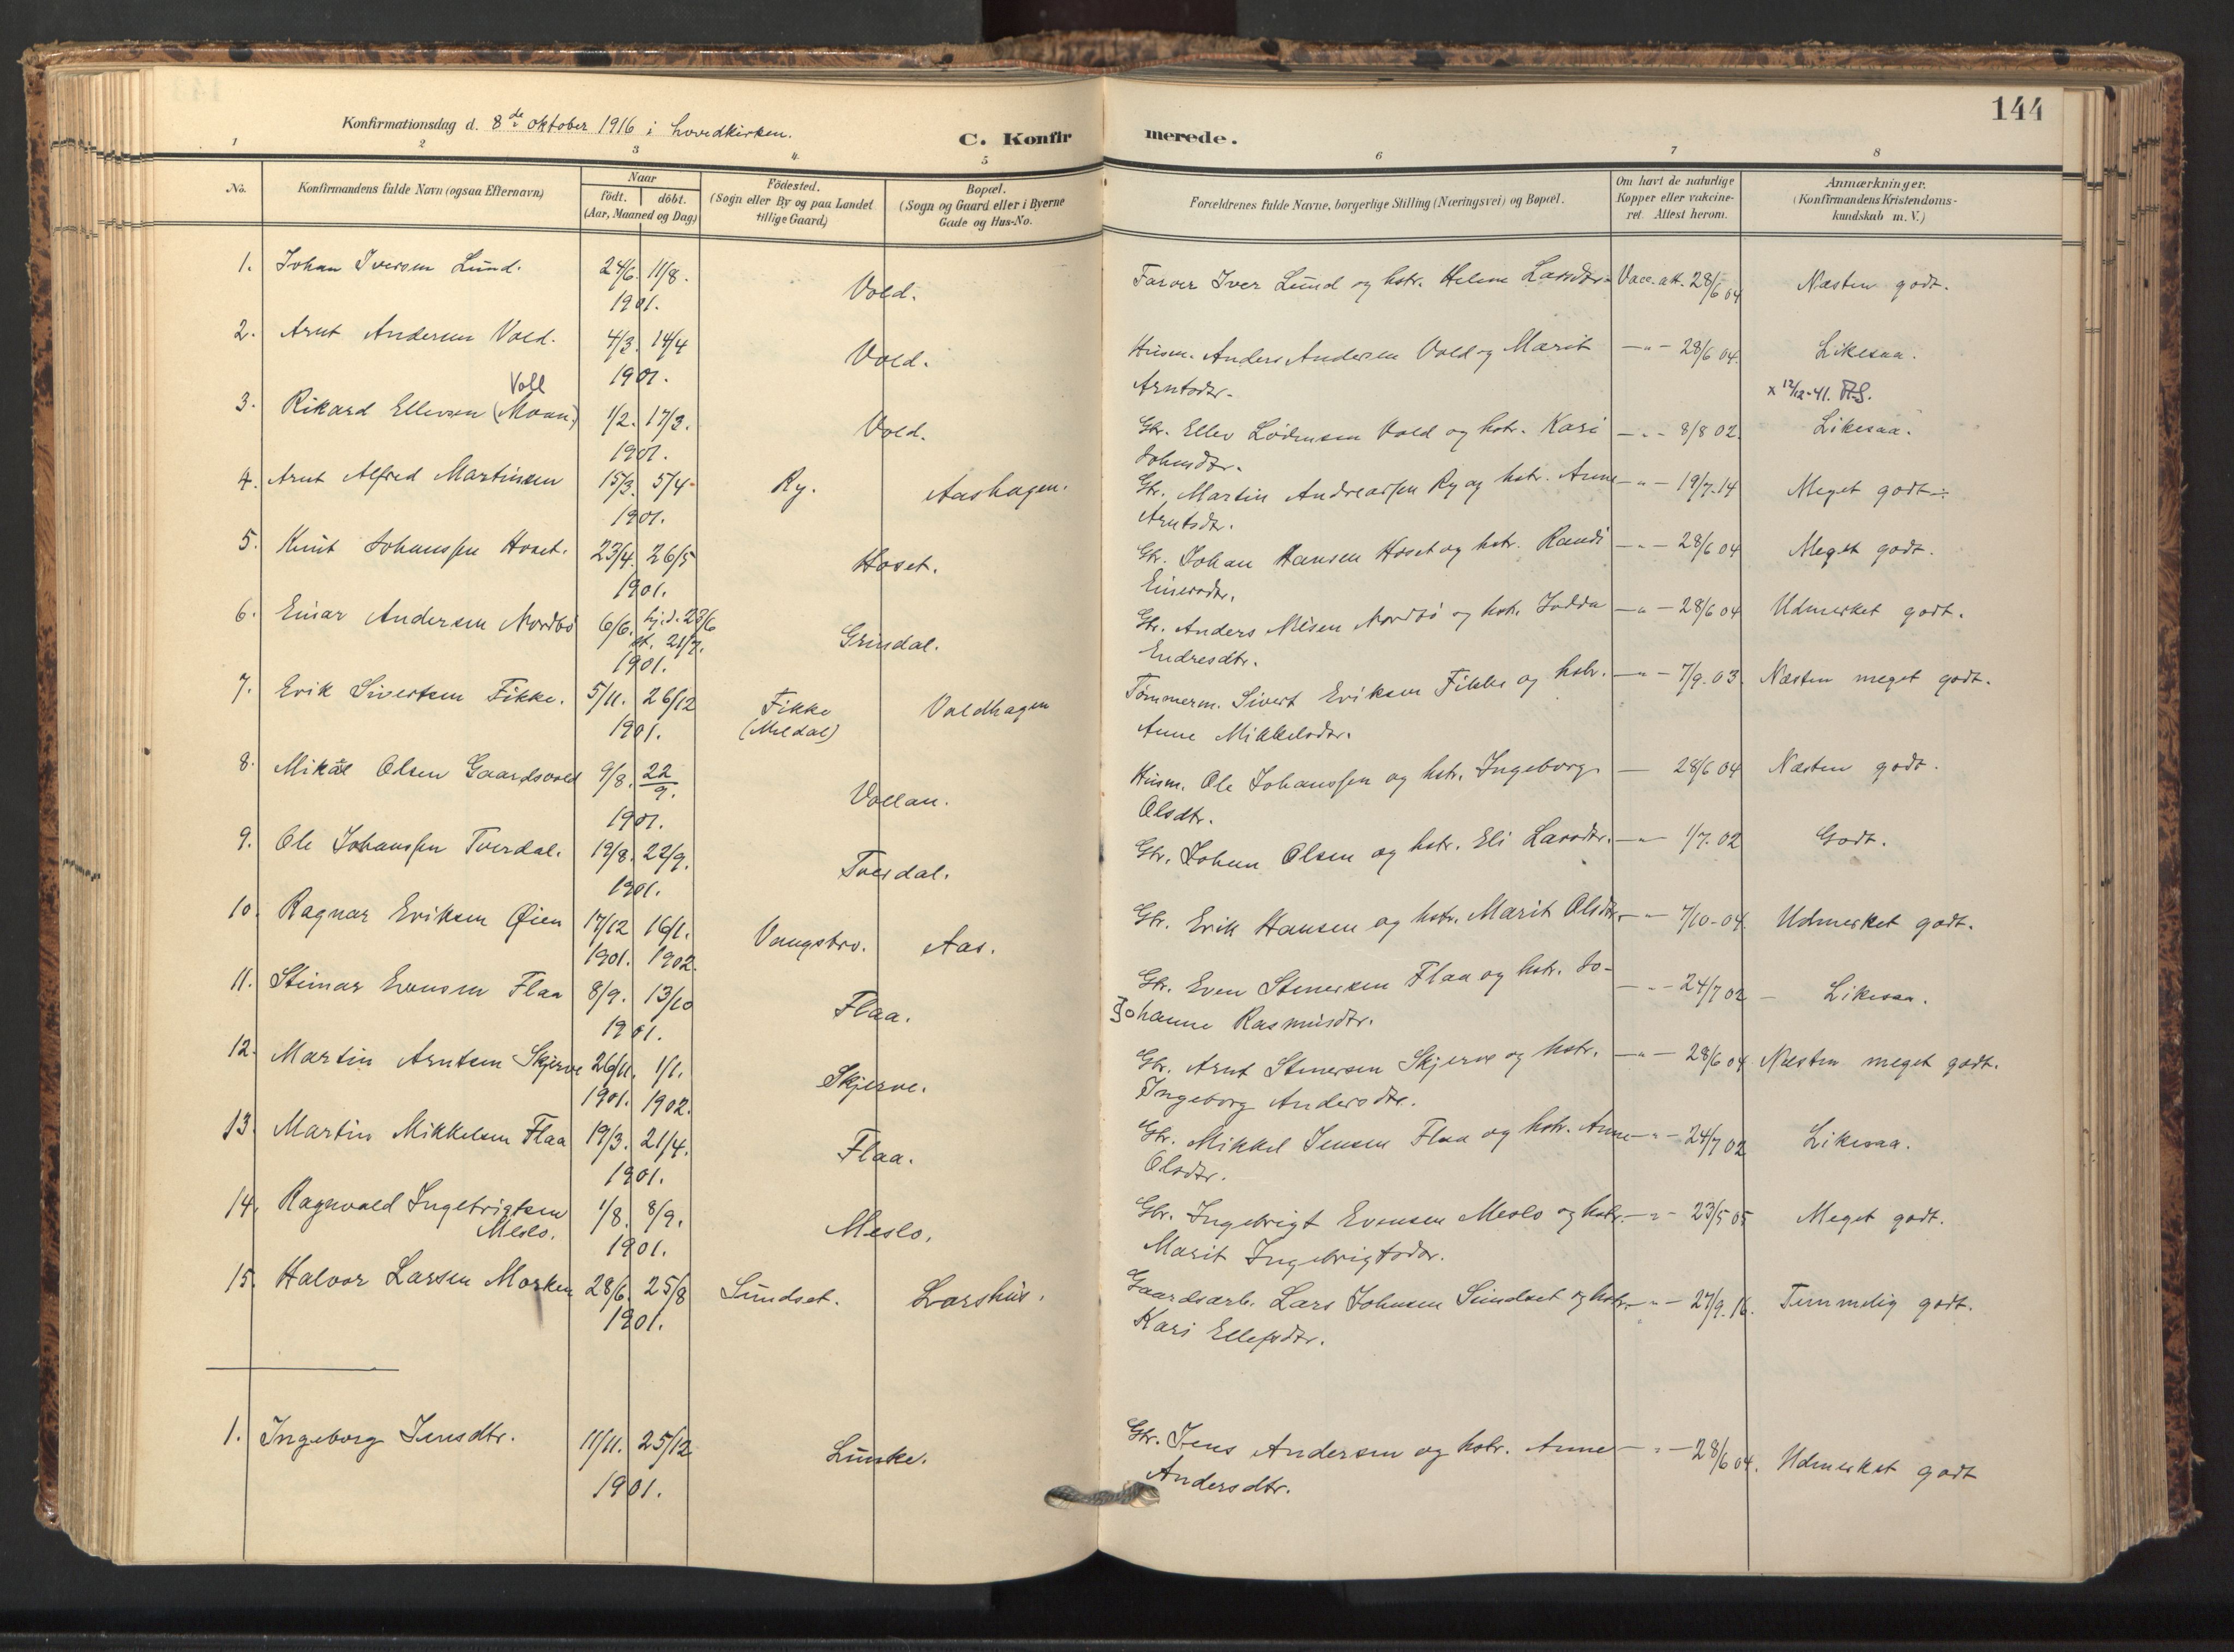 144
Konfirmationsdag d. 8de oktober 1916 i hovedkirken.
C. Konfirmerede.
1 2 3 4 5 6 7 8
No. Konfirmandens fulde Navn (ogsaa Efternavn) Naar födt. döbt. (Aar, Maaned og Dag) Födested. (Sogn eller By og paa Landet tillige Gaard) Bopæl. (Sogn og Gaard eller i Byerne Gade og Hus-No. Forældrenes fulde Navne, borgerlige Stilling (Næringsvei) og Bopæl. Om havt de naturlige Kopper eller vakcineret. Attest herom. Anmærkninger. (Konfirmandens Kristendomskundskab m. V.)
1. Johan Iversen Lund. 24/6. 11/8. 1901. Vold. Farver Iver Lund og hstr. Helene Larsdtr. Vacc. att. 28/6 04 Næsten godt.
2. Arnt Andersen Vold. 4/3. 14/4 1901. Vold. Husm. Anders Andersen Vold og Marit —"— 28/6 04. Likesaa.
Arntsdtr.
x 12/12-41.
Voll
3. Rikard Ellevsen (Moan) 1/2. 17/3. 1901. Vold. Gbr. Ellev Vold og hstr. Kari —"— 8/8 02. Likesaa.
Johnsdtr.
4. Arnt Alfred Martinsen 15/3. 5/4. 1901. Ry. Aashagen. Gbr. Martin Andreassen Ry og hstr. Anne —"— 19/7.14 Meget godt ÷
Arntsdtr.
5. Knut Johanssen Hoset. 23/4. 26/5 1901. Hoset. Gbr. Johan Hansen Hoset og hstr. Randi —"— 28/6 04 Meget godt.
Einersdtr.
6. Einar Andersen Nordbö 6/6. hj.d. 23/6 st. 21/7. 1901. Grindal. Gbr. Anders Nilsen Nordbö og hstr. Jodda —"— 28/6 04 Udmerket godt.
Endresdtr.
7. Erik Sivertsen Fikke. 5/11. 26/12 1901. Fikke (Meldal) Voldhagen Tömmerm. Sivert Eriksen Fikke og hstr. —"— 7/9.03. Næsten meget godt.
Anne Mikkelsdtr.
8. Mikal Olsen Gaardsvold 9/8. 22/9. 1901. Vollan. Husm. Ole Johanssen og hstr. Ingeborg — 28/6 04 Næsten godt.
Olsdtr.
9. Ole Johanssen Tverdal. 19/8. 22/9. 1901. Tverdal. Gbr. Johan Olsen og hstr. Eli Larsdtr. —"— 1/7.02 Godt.
10. Ragnar Eriksen Øien 17/12 1901. 16/1. 1902. Vangsbro. Aas. Gbr. Erik Hansen og hstr. Marit Olsdtr. —"— 7/10-04. Udmerket godt.
11. Steinar Evensen Flaa 8/9. 13/10 1901. Flaa. Gbr. Even Steinersen Flaa og hstr. Jo- —"— 24/7 02 — Likesaa.
Johanne Rasmusdtr.
12. Martin Arntsen Skjerve 26/11. 1901. 1/1. 1902. Skjerve. Gbr. Arnt Stenersen Skjerve og hstr. —"— 28/6 04 Næsten meget godt.
Ingeborg Andersdtr.
13. Martin Mikkelsen Flaa 19/3. 21/4. 1901. Flaa. Gbr. Mikkel Jensen Flaa og hstr. Anne —"— 24/7 02 Likesaa.
Olsdtr.
14. Ragnvald Ingebrigtsen Meslo. 1/8. 8/9. 1901. Meslo. Gbr. Ingebrigt Evensen Meslo og hstr. —"— 23/5 05 Meget godt.
Marit Ingebrigtsdtr.
15. Halvor Larsen Morken 28/6. 25/8 1901. Sundset. Larshus. Gaardsarb. Lars Johnsen Sundset og hstr. —"— 27/9.16. Temmelig godt.
Kari Ellefsdtr.
1. Ingeborg Jensdtr. 11/11. 25/12 1901. Lunke. Gbr. Jens Andersen og hstr. Anne —"— 28/6 04. Udmerket godt
Andersdtr.